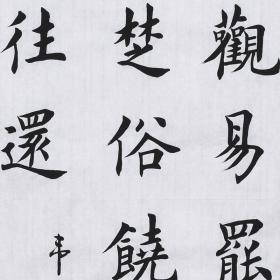 觀易罷
楚俗饒
往還
韦